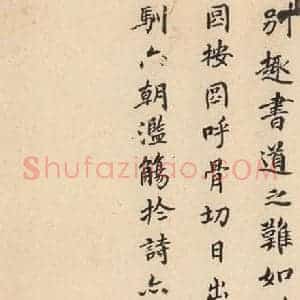 别趣書道之難如
図按図呼骨切日出
馴六朝濫觴於詩亦
Shufazidao.COM